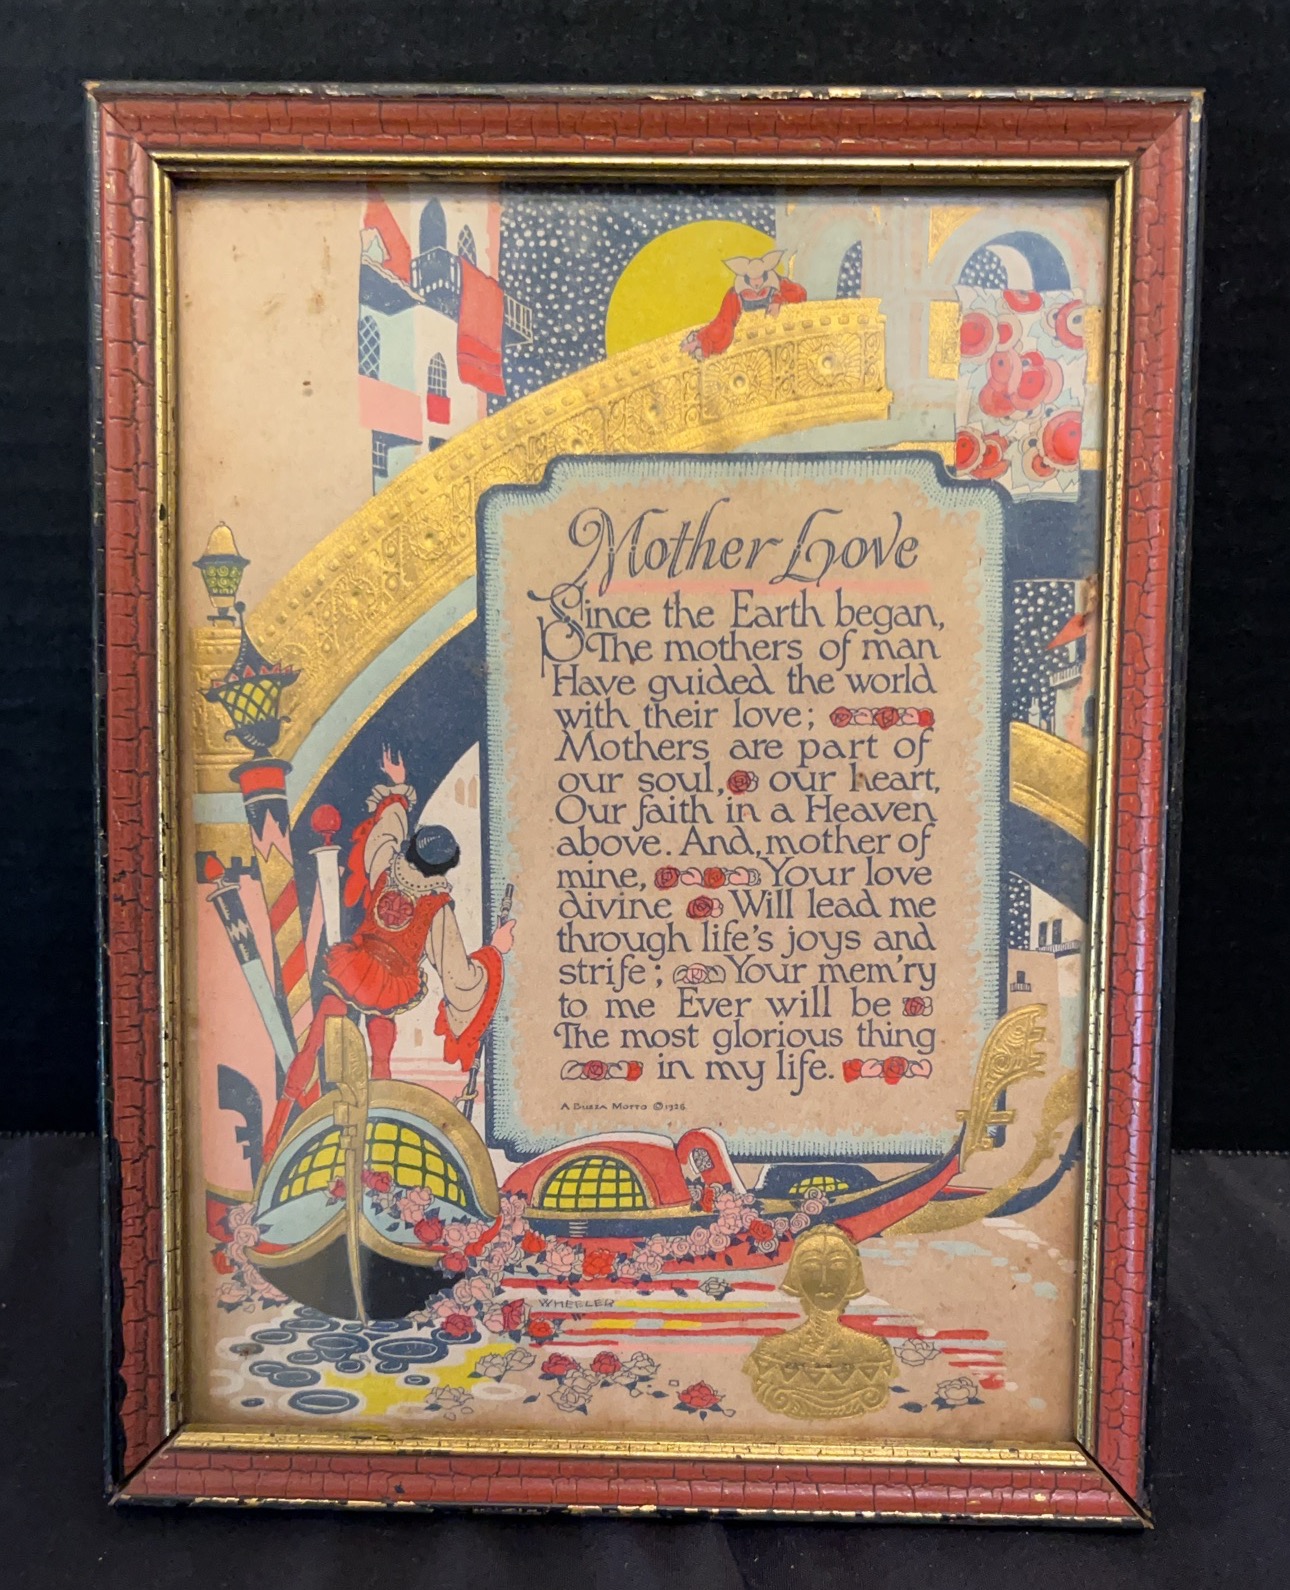 Mother Love
Since the Earth began,
The mothers of man
Have guided the world
with their love;
Mothers are part of
our soul, our heart,
Our faith in a Heaven
above. And, mother of
mine, Your love
divine Will lead me
through life's joys and
strife; Your mem'ry
to me Ever will be
The most glorious thing
in my life.
A Buzza Motto © 1926
WHEELER